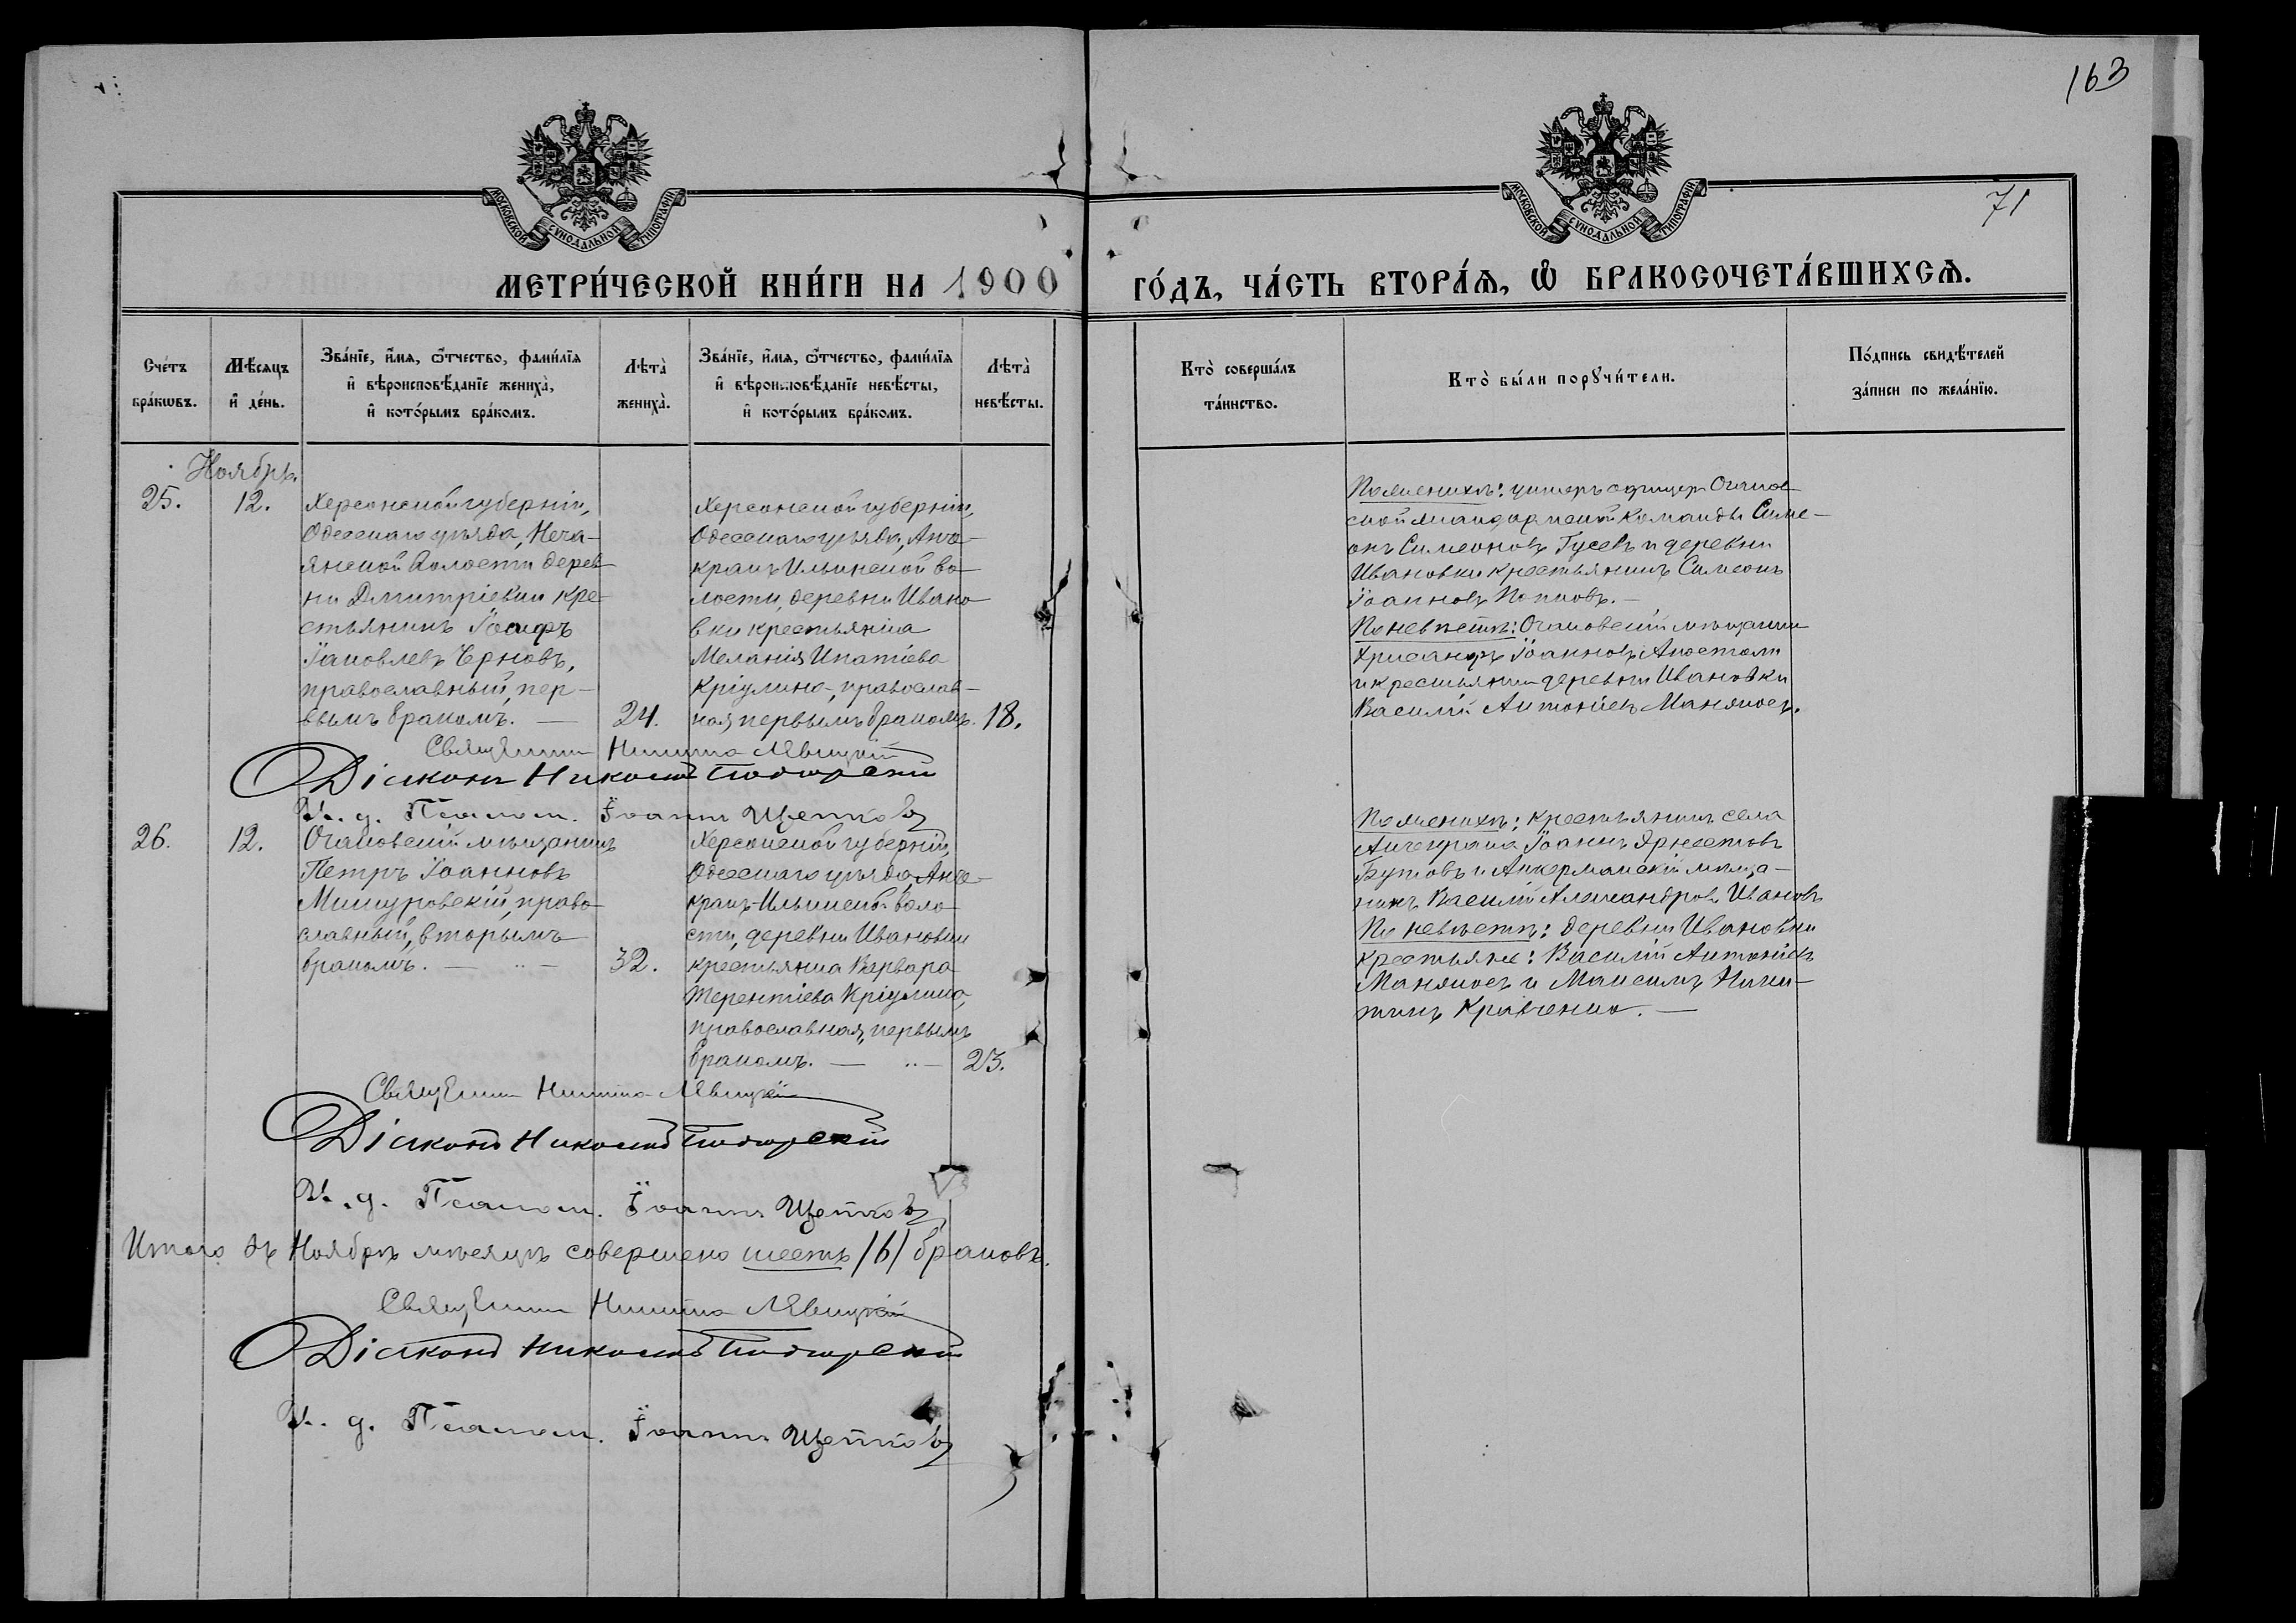 163
71
МОСКОВСКОЙ СѴНОДАЛЬНОЙ ТИПОГРАФІИ.
МОСКОВСКОЙ СѴНОДАЛЬНОЙ ТИПОГРАФІИ.
МЕТРИ́ЧЕСКОЙ КНИ́ГИ НА 1900 ГО́ДЪ, ЧА́СТЬ ВТОРА́Ѧ, Ѡ҆ БРАКОСОЧЕТА́ВШИХСѦ.
Сче́тъ
бра́кѡвъ.
Мѣ́сяцъ
и҆ де́нь.
Зва́нїе, и҆́мѧ, ѻ҆́тчество, фами́лїѧ
и҆ вѣроисповѣ́данїе жениха̀,
и҆ кото́рымъ бра́комъ.
Лѣта̀
жениха̀.
Зва́нїе, и҆́мѧ, ѻ҆́тчество, фами́лїѧ
и҆ вѣроисповѣ́данїе невѣ́сты,
и҆ кото́рымъ бра́комъ.
Лѣта̀
невѣ́сты.
Кто̀ соверша́лъ
та́инство.
Кто̀ бы́ли порꙋчи́тели.
По́дпись свидѣ́телей
за́писи по жела́нїю.
Ноябрь.
25.
12.
Херсонской губерніи,
Одесскаго уѣзда, Неча-
янской Волости дерев
ни Дмитріевки кре-
стьянинъ Іосифъ
Іаковлевъ Черновъ,
православный, пер-
вымъ бракомъ. —
24.
Херсонской губерніи,
Одесскаго уѣзда, Анч-
кракъ Ильинской во-
лости, деревни Ивано
вки крестьянка
Меланія Ипатіева
Кріулина, православ-
ная, первымъ бракомъ.
18.
По женихѣ: унтеръ офицеръ Очаков
ской жандармской команды Симе-
онъ Симеоновъ Гусевъ и деревни
Ивановки крестьянинъ Симеонъ
Іоанновъ Поповъ. —
По невѣстѣ: Очаковскій мѣщанинъ
Хрисанфъ Іоанновъ Апостоли
и крестьянинъ деревни Ивановки
Василій Антоніевъ Манякосъ.
Священникъ Никита Левицкій
Діаконъ Николай Подгорскій
И. д. Псалом. Іоаннъ Щетковъ
26.
12.
Очаковскій мѣщанинъ
Петръ Іоанновъ
Мишуровскій, право
славный, вторымъ
бракомъ. — „ —
32.
Херсонской губерніи,
Одесскаго уѣзда, Анче-
кракъ-Ильинской воло
сти, деревни Ивановки
крестьянка Варвара
Терентіева Кріулина,
православная, первымъ
бракомъ. — „ —
23.
По женихѣ: крестьянинъ села
Анчекрака Іоаннъ Эрнестовъ
Бутовъ и Аккерманскій мѣща-
нинъ Василій Александровъ Ивановъ
По невѣстѣ: деревни Ивановки
крестьяне: Василій Антоніевъ
Манякосъ и Максимъ Ники-
тинъ Кравченко. —
Священникъ Никита Левицкій
Діаконъ Николай Подгорскій
И. д. Псалом. Іоаннъ Щетковъ
Итого въ Ноябрѣ мѣсяцѣ совершено шесть /6/ браковъ.
Священникъ Никита Левицкій
Діаконъ Николай Подгорскій
И. д. Псалом. Іоаннъ Щетковъ